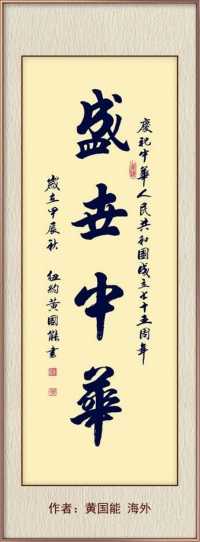 慶祝中華人民共和國成立七十五周年
盛世中華
歲在甲辰秋 紐約黃國能書
作者：黄国能 海外